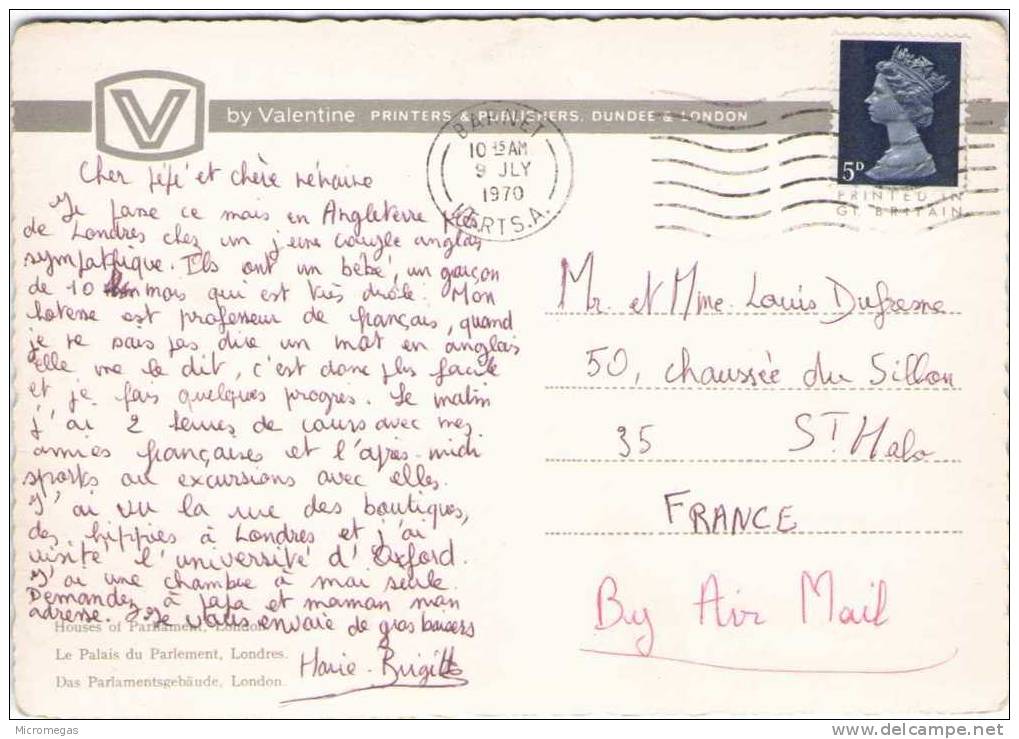 by Valentine PRINTERS & PUBLISHERS, DUNDEE & LONDON
BARNET
10 15 AM
9 JLY
1970
HERTS.A.
5D
PRINTED IN
GT. BRITAIN
Cher pépé et chère mémaine
Je passe ce mais en Angleterre près
de Londres chez un jeune couple anglais
sympathique. Ils ont un bébé, un garçon
de 10 mois qui est très drôle. Mon
hotesse est professeur de français, quand
je ne sais pas dire un mot en anglais
elle me le dit, c'est donc plus facile
et je fais quelques progrès. Le matin
j'ai 2 heures de cours avec mes
amies françaises et l'après-midi
sports ou excursions avec elles.
J'ai vu la rue des boutiques,
des hippies à Londres et j'ai
visité l'université d'Oxford.
J'ai une chambre à moi seule.
Demandez à papa et maman mon
adresse. Je vous envoie de gros baisers
Marie-Brigitte
Houses of Parliament, London.
Le Palais du Parlement, Londres.
Das Parlamentsgebäude, London.
Mr. et Mme. Louis Dufresne
50, chaussée du Sillon
35 ST Malo
FRANCE
By Air Mail
Micromegas
www.delcampe.net